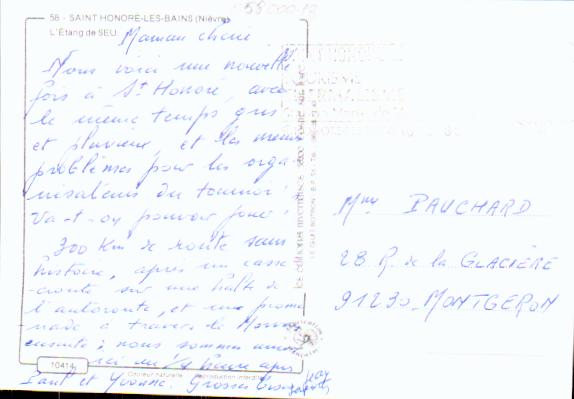 58 - SAINT HONORÉ-LES-BAINS (Nièvre)
L'Étang de SEU
Maman chérie
Nous voici une nouvelle
fois à St Honoré, avec
le même temps gris
et pluvieux, et les mêmes
problèmes pour les orga-
nisateurs du tournoi :
Va-t-on pouvoir jouer ?
300 Km de route sans
histoire, après un casse
-croute sur une halte de
l'autoroute, et une prome
nade à travers le Morvan
ensuite ; nous sommes arrivés
ici un 1/4 heure après
Paul et Yvonne. Grosses bises
10414
Couleur naturelle Reproduction interdite
les éditions nivernaises
Mme PAUCHARD
28 R. de la GLACIÈRE
91230 - MONTGERON